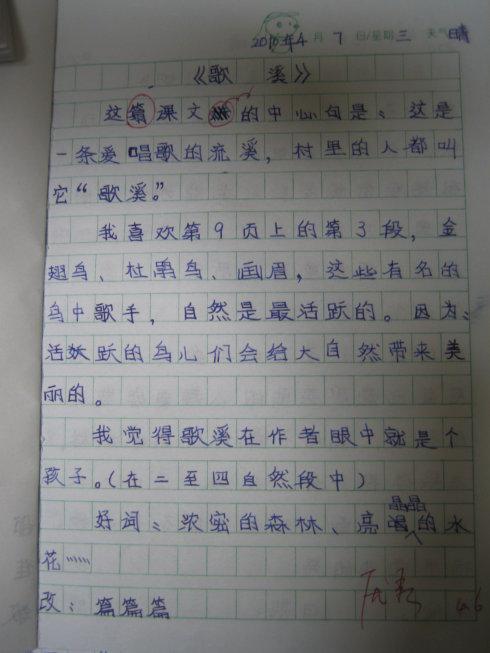 2010年4月7日/星期三 天气晴
《歌 溪》
这篇课文的中心句是：这是
一条爱唱歌的流溪，村里的人都叫
它“歌溪。”
我喜欢第9页上的第3段，金
翅鸟、杜鹃鸟、画眉，这些有名的
鸟中歌手，自然是最活跃的。因为：
活跃的鸟儿们会给大自然带来美
丽的。
我觉得歌溪在作者眼中就是个
孩子。（在二至四自然段中）
好词：浓密的森林、亮晶晶的水
花……
改：篇篇篇